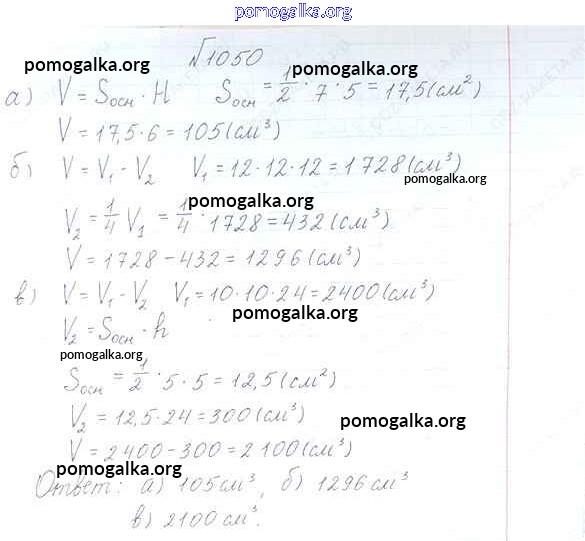 pomogalka.org
√1050
pomogalka.org pomogalka.org
а) V = Sосн · H Sосн = 1/2 · 7 · 5 = 17,5 (см²)
V = 17,5 · 6 = 105 (см³)
б) V = V₁ - V₂ V₁ = 12 · 12 · 12 = 1728 (см³)
pomogalka.org
pomogalka.org
V₂ = 1/4 V₁ = 1/4 · 1728 = 432 (см³)
pomogalka.org
V = 1728 - 432 = 1296 (см³)
в) V = V₁ - V₂ V₁ = 10 · 10 · 24 = 2400 (см³)
pomogalka.org
V₂ = Sосн · h
pomogalka.org
Sосн = 1/2 · 5 · 5 = 12,5 (см²)
V₂ = 12,5 · 24 = 300 (см³)
pomogalka.org
V = 2400 - 300 = 2100 (см³)
pomogalka.org
Ответ: а) 105 см³, б) 1296 см³
в) 2100 см³.